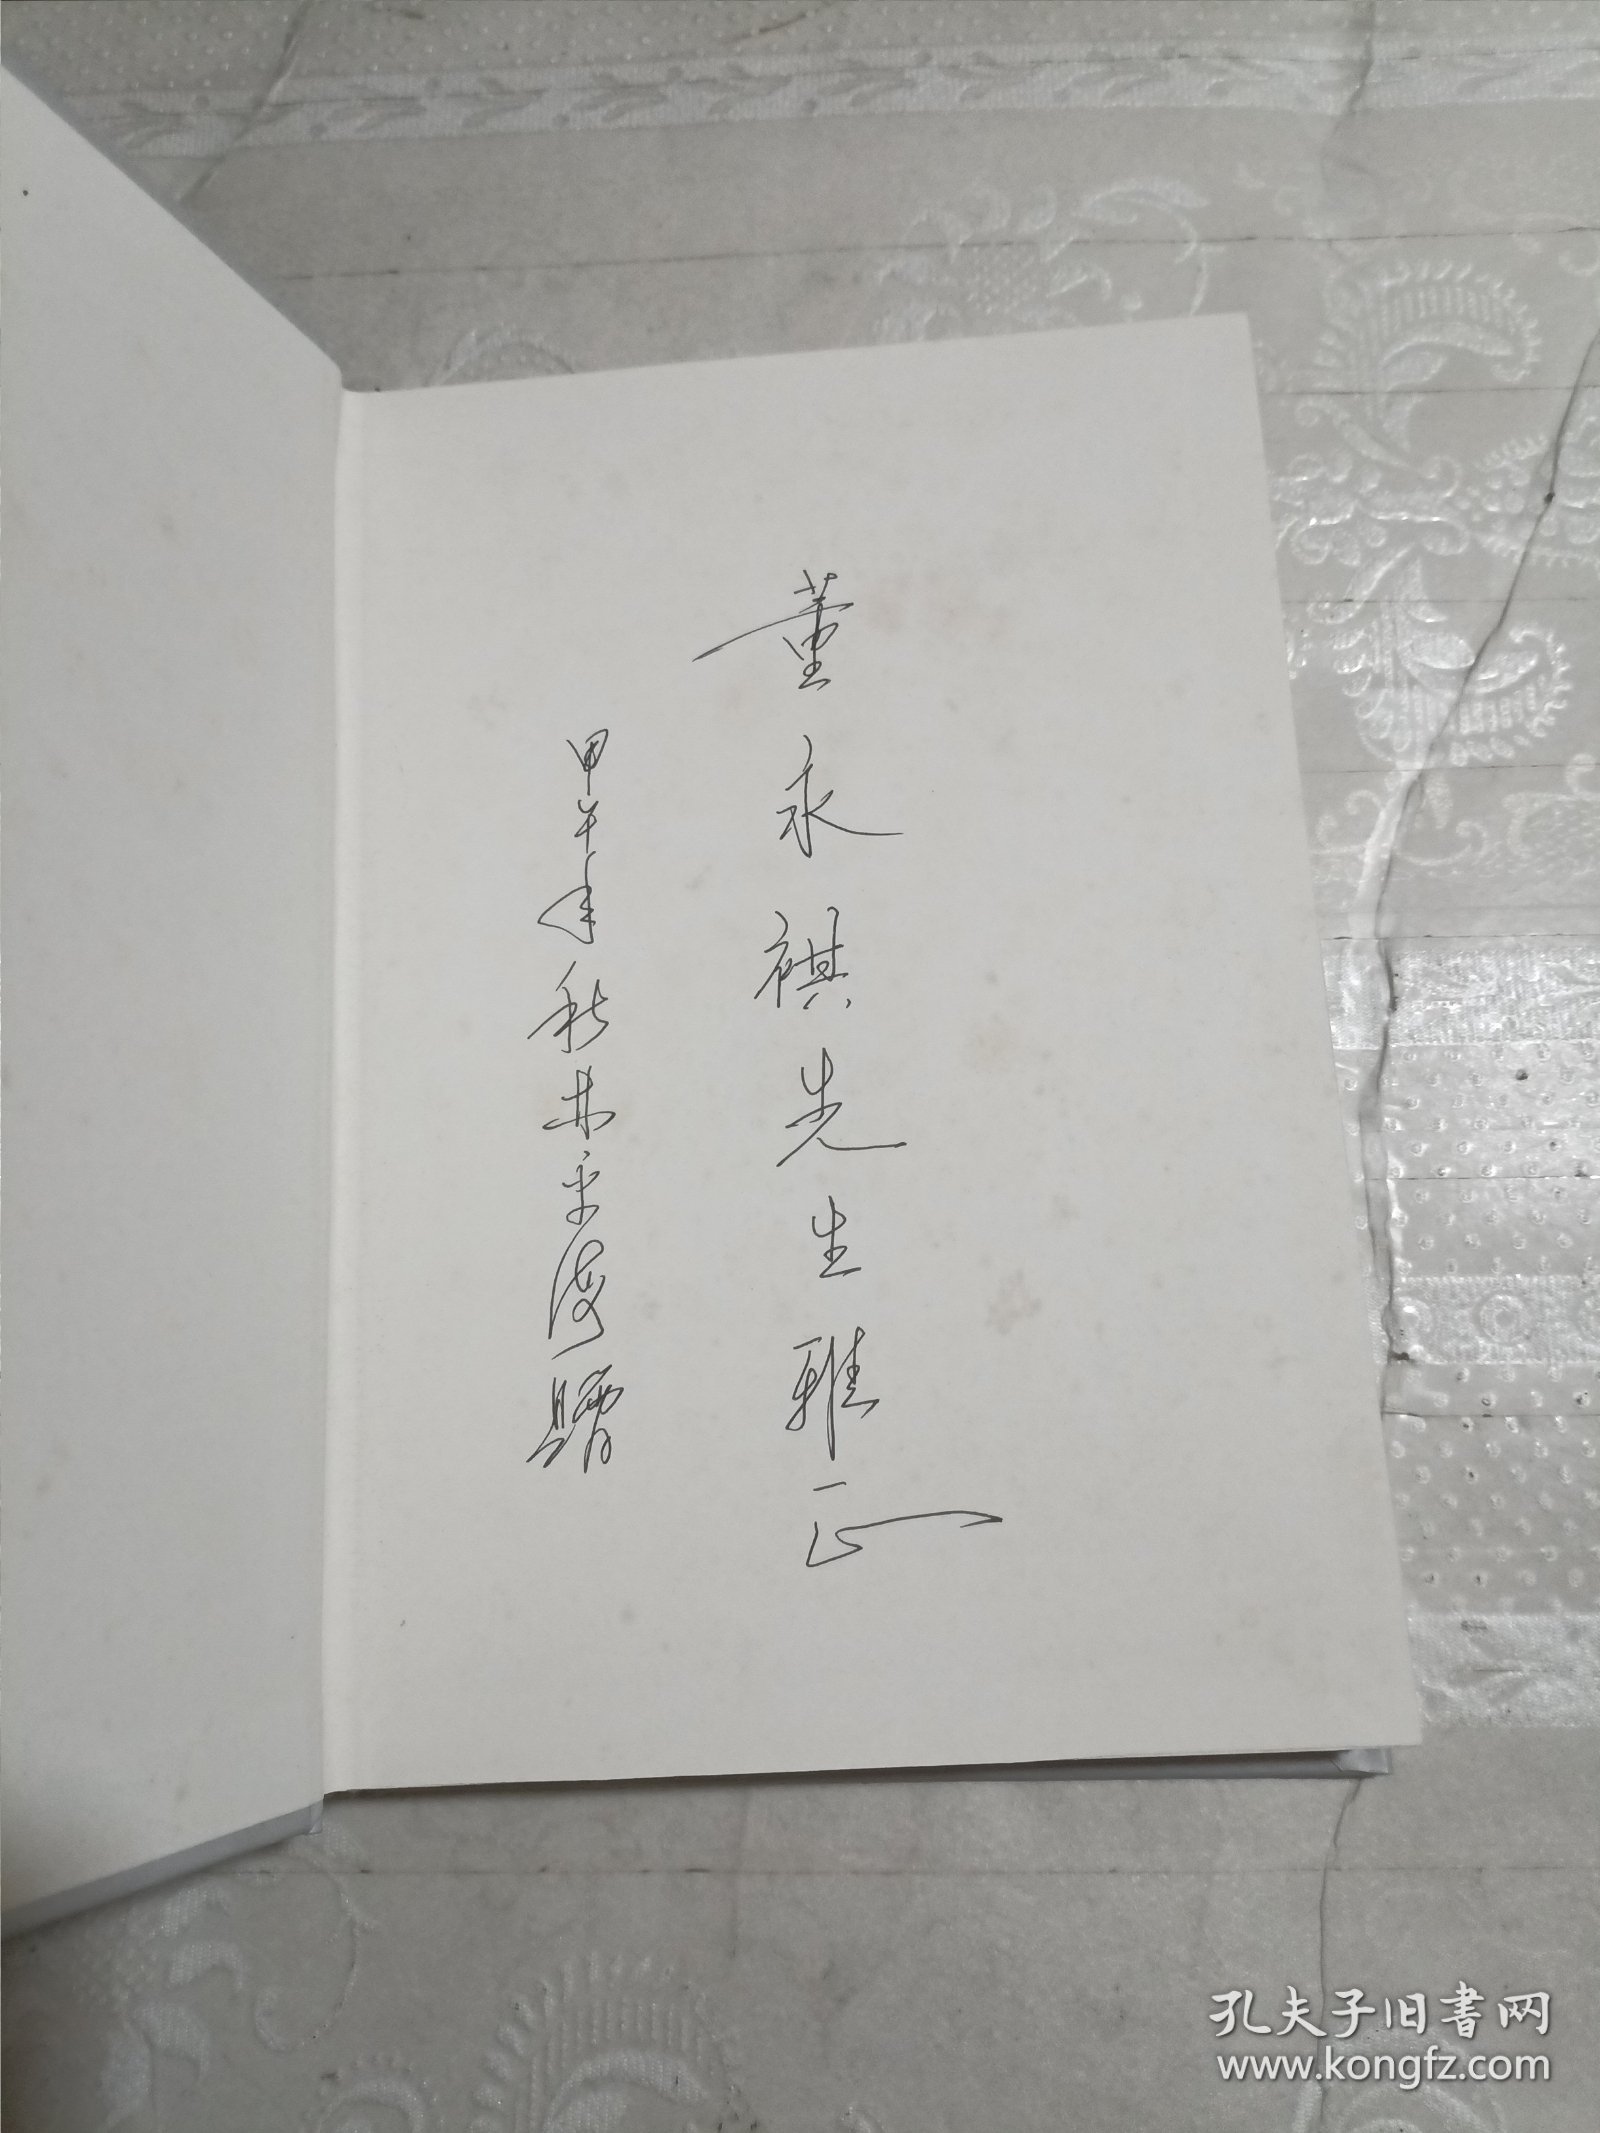 董永祺先生雅正
甲午年秋林平海赠
孔夫子旧书网
www.kongfz.com